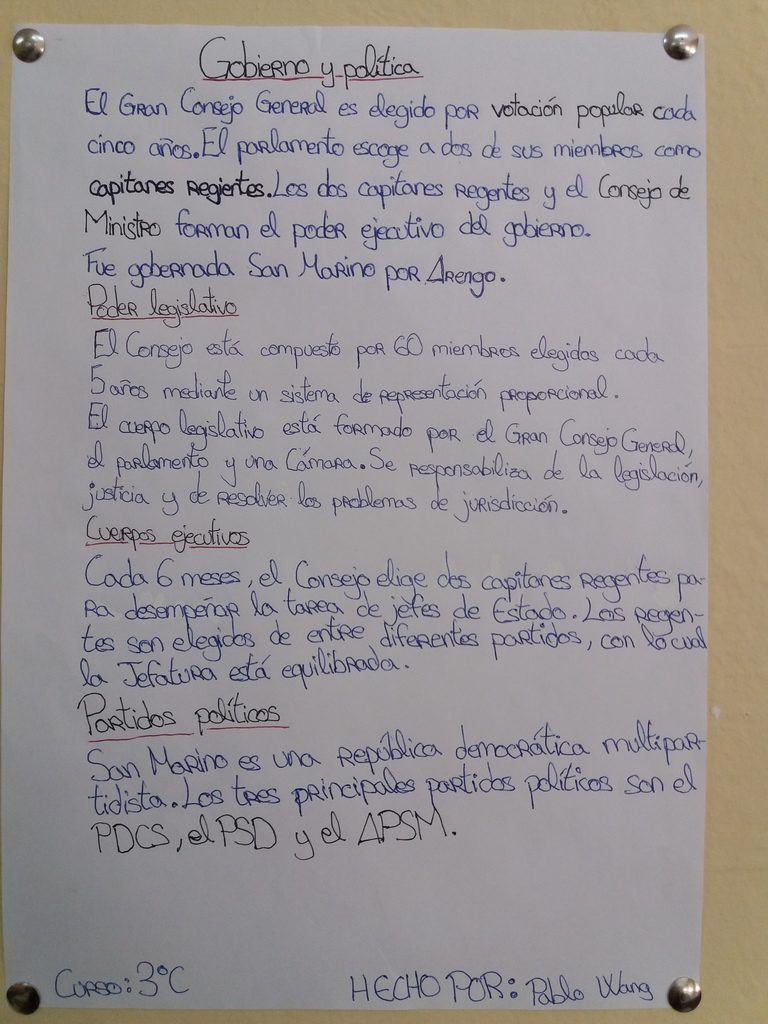 Gobierno y política
El Gran Consejo General es elegido por votación popular cada
cinco años. El parlamento escoge a dos de sus miembros como
capitanes regientes. Los dos capitanes regentes y el Consejo de
Ministro forman el poder ejecutivo del gobierno.
Fue gobernada San Marino por Arengo.
Poder legislativo
El Consejo está compuesto por 60 miembros elegidos cada
5 años mediante un sistema de representación proporcional.
El cuerpo legislativo está formado por el Gran Consejo General,
el parlamento y una Cámara. Se responsabiliza de la legislación,
justicia y de resolver los problemas de jurisdicción.
Cuerpos ejecutivos
Cada 6 meses, el Consejo elige dos capitanes regentes pa-
ra desempeñar la tarea de jefes de Estado. Los regen-
tes son elegidos de entre diferentes partidos, con lo cual
la Jefatura está equilibrada.
Partidos políticos
San Marino es una república democrática multipar-
tidista. Los tres principales partidos políticos son el
PDCS, el PSD y el APSM.
Curso: 3°C HECHO POR: Pablo Wang